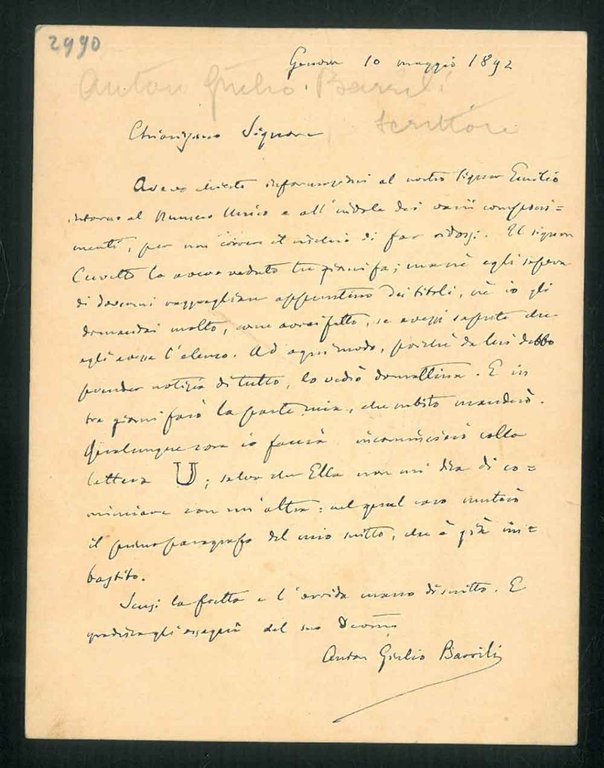 2990
Genova 10 maggio 1892
Anton Giulio Barrili
scrittore
Chiarissimo Signore
Avevo chiesto informazioni al nostro signor Emilio
intorno al Numero Unico e all'indole dei varii componi=
menti, per non correre il rischio di far Il signor
Cuvetto lo aveva veduto tre giorni fa; ma nè egli sapeva
di dovermi ragguagliare appuntino dei titoli, nè io gli
domandai molto, come avrei fatto, se avessi saputo che
egli avesse l'elenco. Ad ogni modo, poichè da lui debbo
prender notizia di tutto, lo vedrò domattina. E in
tre giorni farò la parte mia, che subito manderò.
Qualunque cosa io faccia incomincierà colla
lettera U; salvo che Ella non mi dica di co=
minciare con un'altra: nel qual caso muterò
il primo paragrafo del mio scritto, che è già im=
bastito.
Scusi la fretta e l'orrida mano di scritto. E
gradisca gli ossequii del suo Devmo
Anton Giulio Barrili